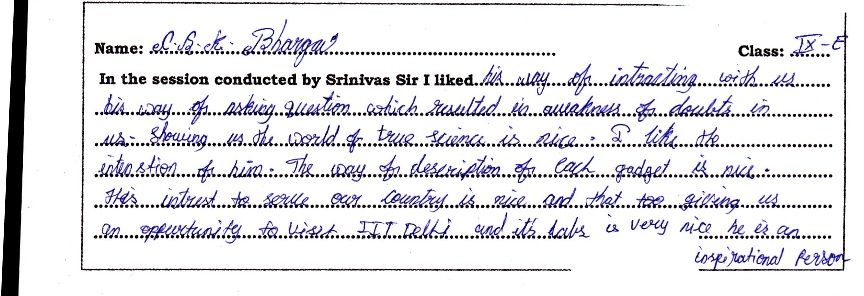 Name: C.B.K. Bhargav Class: IX-E
In the session conducted by Srinivas Sir I liked his way of intracting with us
his way of asking question which resulted in awakness of doubts in
us. Showing us the world of true science is nice. I like the
of him. The way of description of each gadget is nice.
His intrest to serve our country is nice and that too giving us
an oppurtunity to visit IIT Delhi and its labs is very nice he is an
inspirational Person